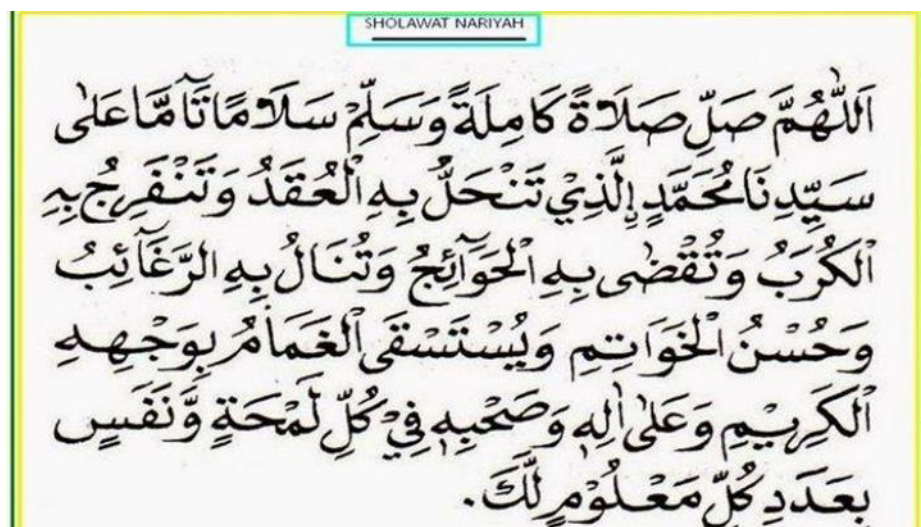 SHOLAWAT NARIYAH
اَللّٰهُمَّ صَلِّ صَلَاةً كَامِلَةً وَسَلِّمْ سَلَامًا تَآمًّا عَلٰى
سَيِّدِنَا مُحَمَّدٍ ࣙالَّذِيْ تَنْحَلُّ بِهِ الْعُقَدُ وَتَنْفَرِجُ بِهِ
الْكُرَبُ وَتُقْضٰى بِهِ الْحَوَآئِجُ وَتُنَالُ بِهِ الرَّغَآئِبُ
وَحُسْنُ الْخَوَاتِمِ وَيُسْتَسْقَى الْغَمَامُ بِوَجْهِهِ
الْكَرِيْمِ وَعَلٰى اٰلِهٖ وَصَحْبِهٖ فِيْ كُلِّ لَمْحَةٍ وَّنَفَسٍ
بِعَدَدِ كُلِّ مَعْلُوْمٍ لَّكَ.